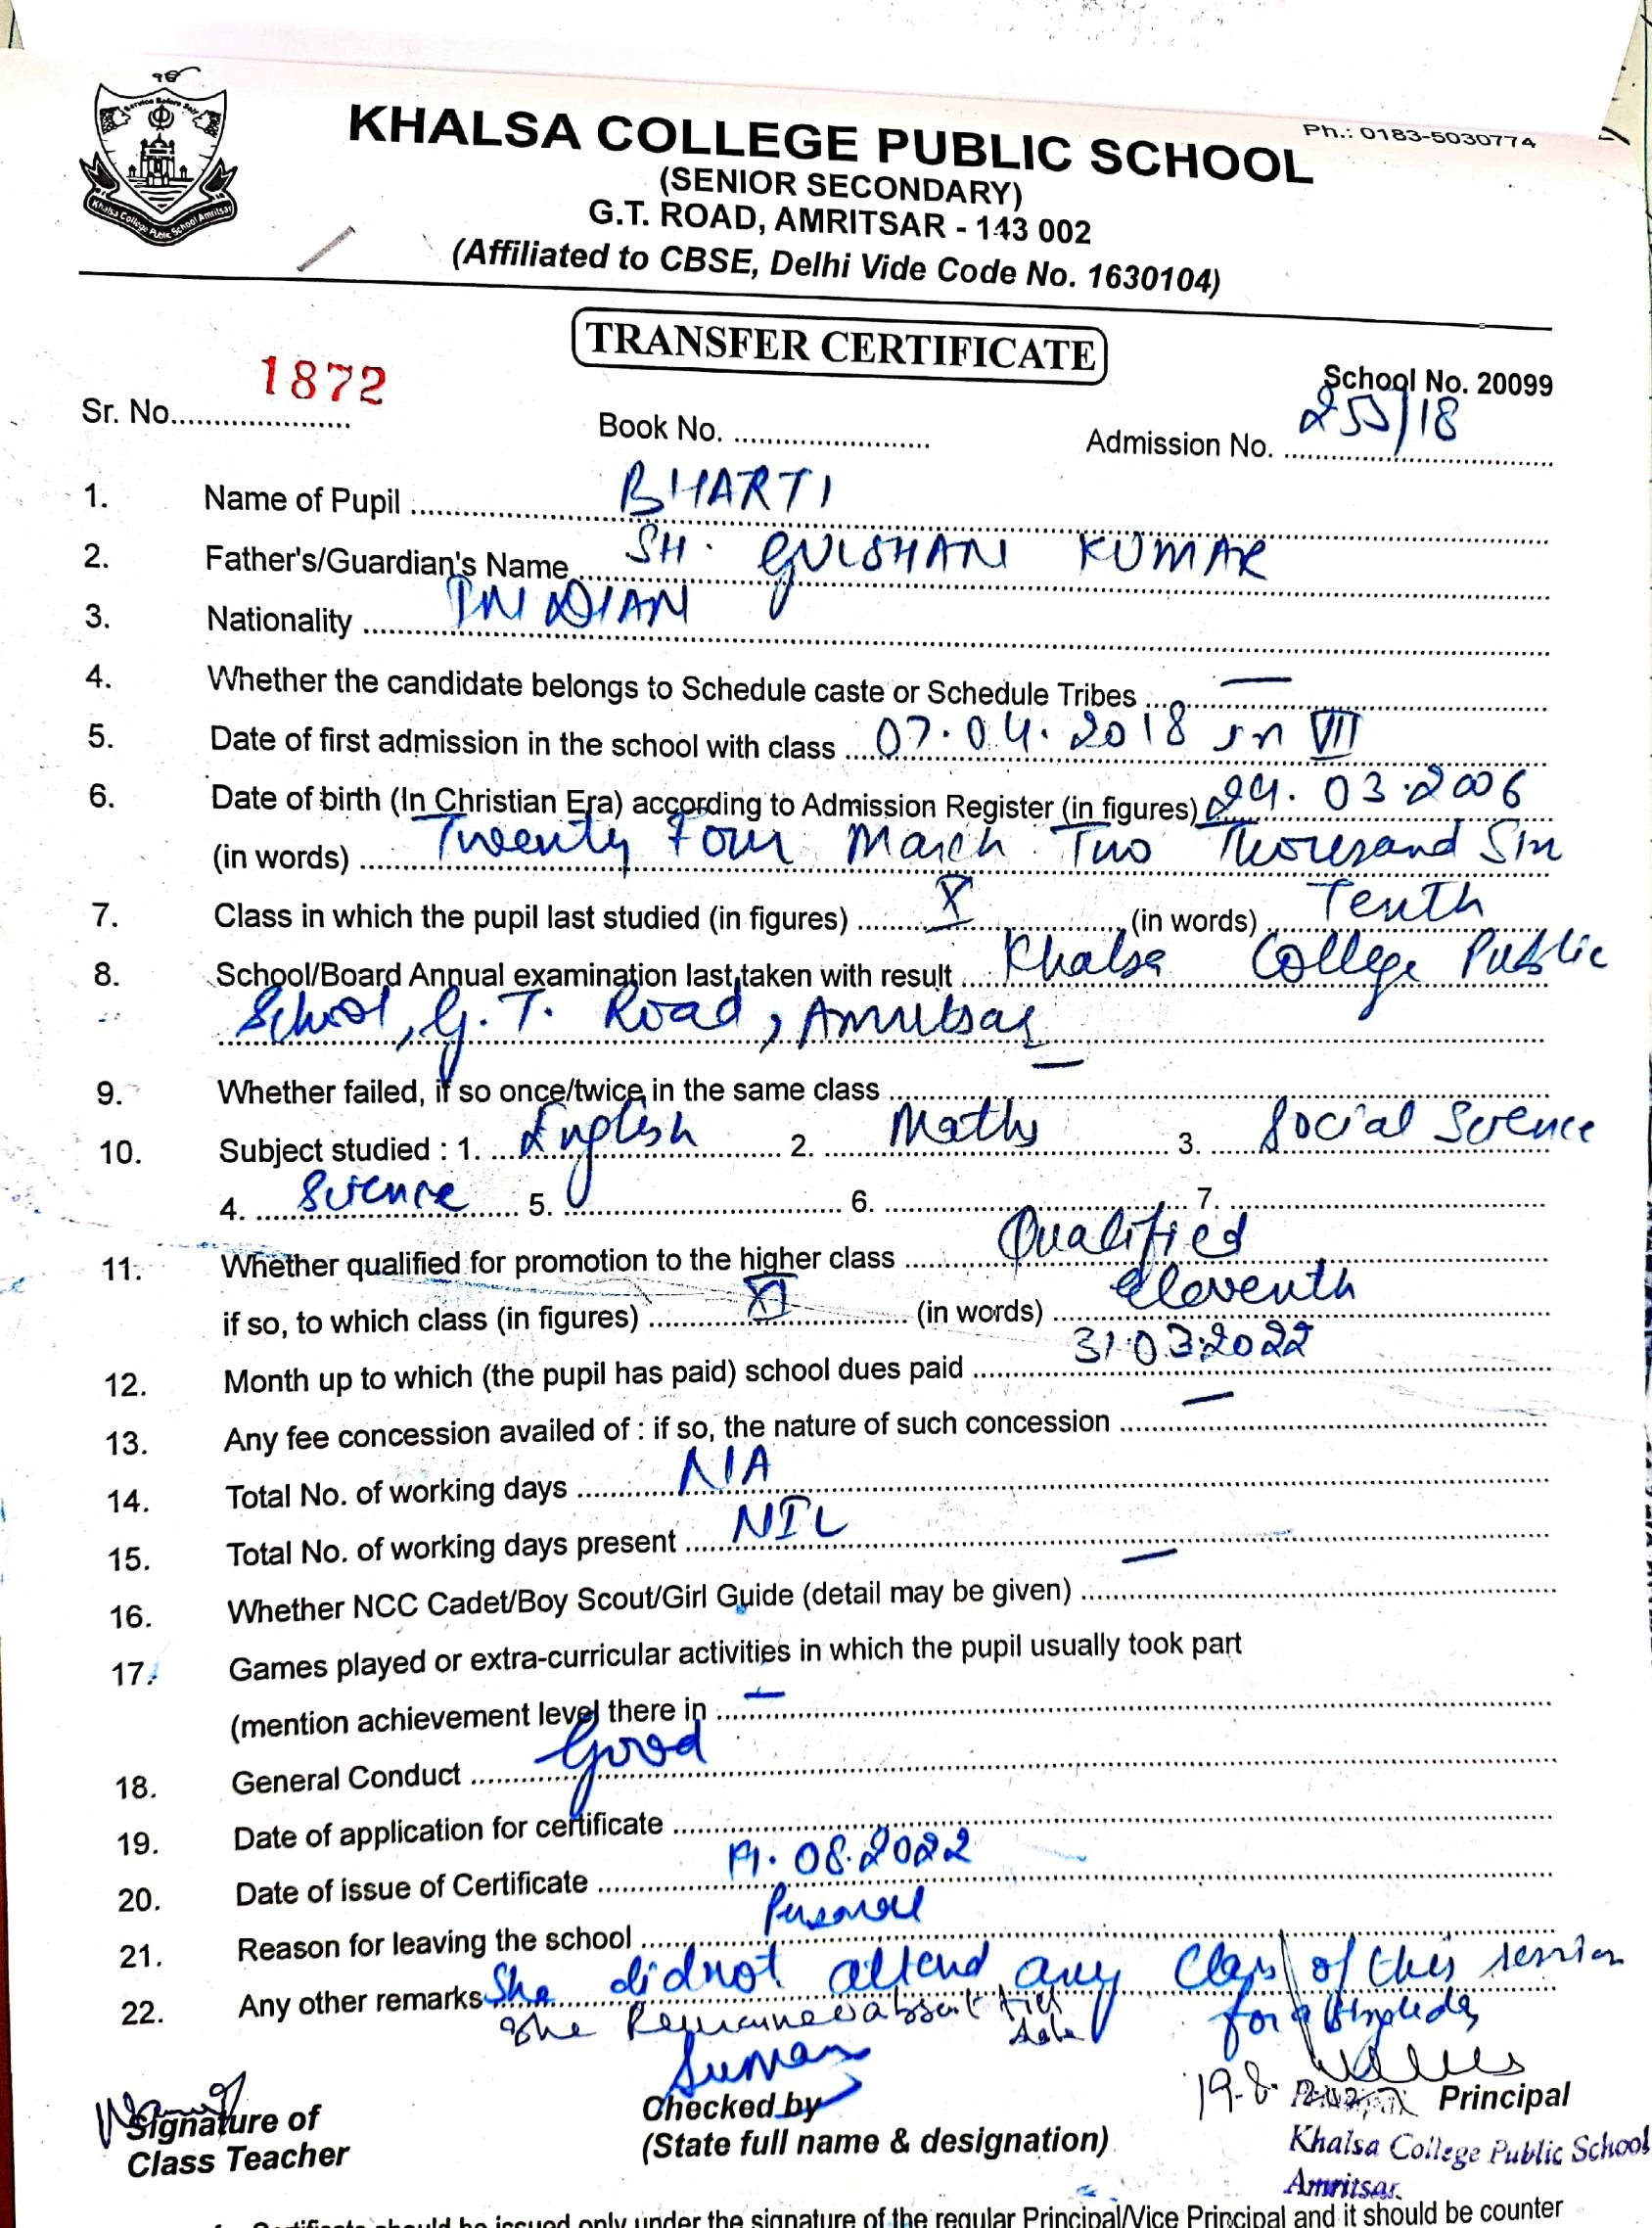 Service Before Self
Khalsa College Public School Amritsar
Ph.: 0183-5030774
KHALSA COLLEGE PUBLIC SCHOOL
(SENIOR SECONDARY)
G.T. ROAD, AMRITSAR - 143 002
(Affiliated to CBSE, Delhi Vide Code No. 1630104)
TRANSFER CERTIFICATE
School No. 20099
Sr. No. 1872 Book No. Admission No. 255/18
1. Name of Pupil BHARTI
2. Father's/Guardian's Name SH. GULSHAN KUMAR
3. Nationality INDIAN
4. Whether the candidate belongs to Schedule caste or Schedule Tribes —
5. Date of first admission in the school with class 07.04.2018 in VII
6. Date of birth (In Christian Era) according to Admission Register (in figures) 24.03.2006
(in words) Twenty Four March Two Thousand Six
7. Class in which the pupil last studied (in figures) X (in words) Tenth
8. School/Board Annual examination last taken with result Khalsa College Public
School, G.T. Road, Amritsar
9. Whether failed, if so once/twice in the same class —
10. Subject studied : 1. English 2. Maths 3. Social Science
4. Science 5. 6. 7.
11. Whether qualified for promotion to the higher class Qualified
if so, to which class (in figures) XI (in words) Eleventh
12. Month up to which (the pupil has paid) school dues paid 31.03.2022
13. Any fee concession availed of : if so, the nature of such concession —
14. Total No. of working days N/A
15. Total No. of working days present NIL
16. Whether NCC Cadet/Boy Scout/Girl Guide (detail may be given) —
17. Games played or extra-curricular activities in which the pupil usually took part
(mention achievement level there in —
18. General Conduct Good
19. Date of application for certificate
20. Date of issue of Certificate 19.08.2022
21. Reason for leaving the school Personal
22. Any other remarks She didnot attend any Class of this session
She Remained absent till date for
Suman
19.8.
Signature of
Class Teacher
Checked by
(State full name & designation)
Principal
Khalsa College Public School
Amritsar
Certificate should be issued only under the signature of the regular Principal/Vice Principal and it should be counter